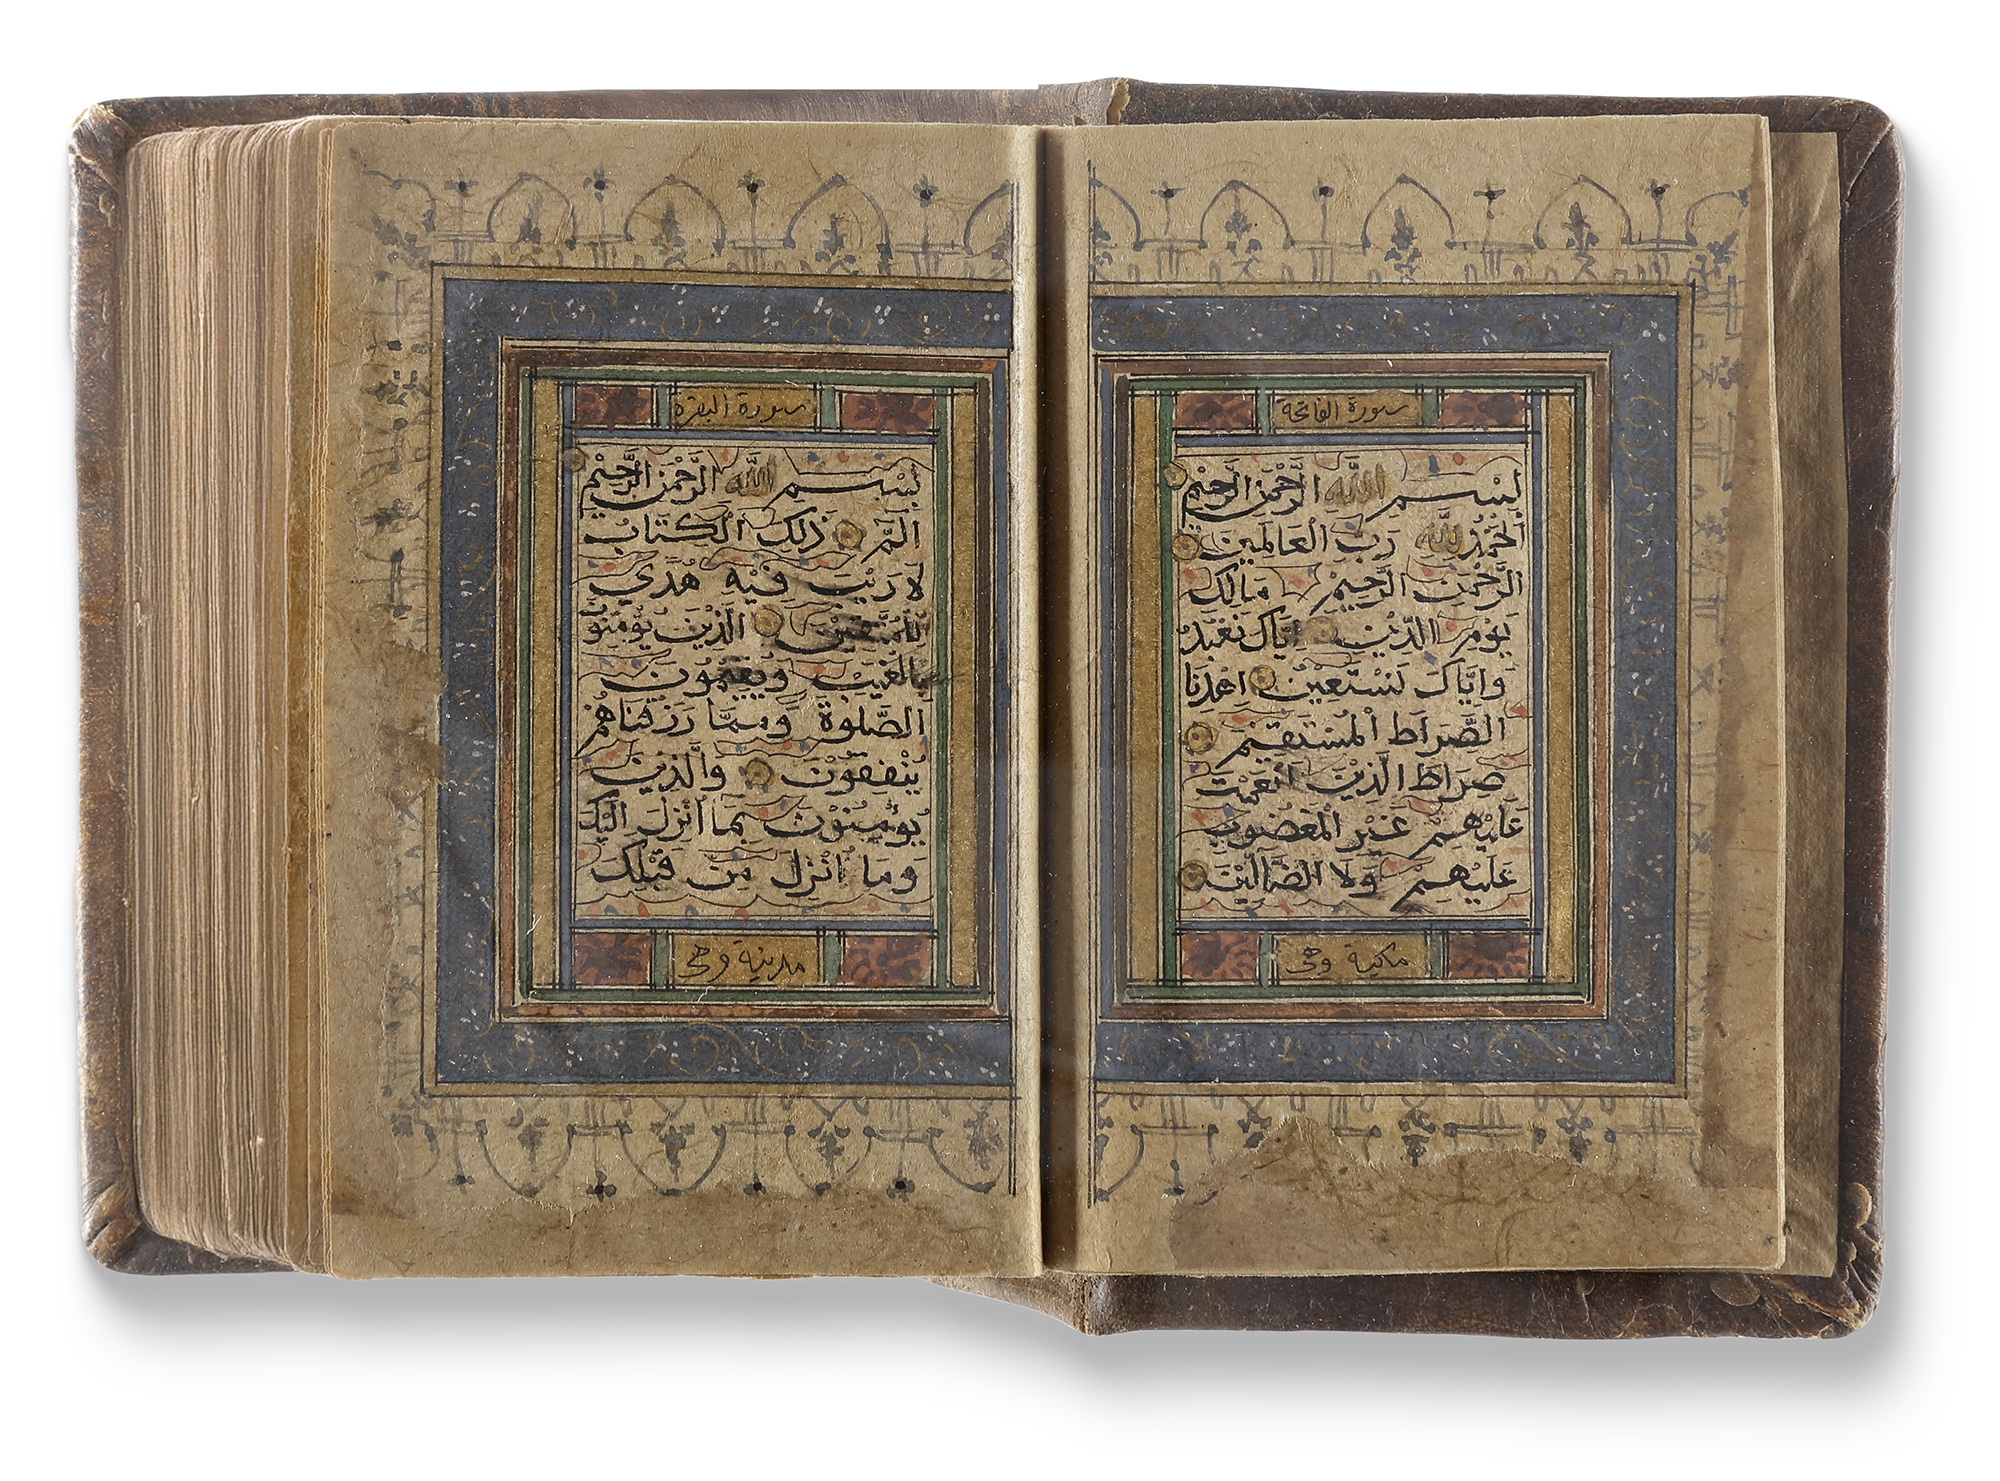 سورة الفاتحة
بِسْمِ اللّٰهِ الرَّحْمٰنِ الرَّحِيْمِ
اَلْحَمْدُ لِلّٰهِ رَبِّ الْعَالَمِيْنَ
الرَّحْمٰنِ الرَّحِيْمِ مَالِكِ
يَوْمِ الدِّيْنِ اِيَّاكَ نَعْبُدُ
وَاِيَّاكَ نَسْتَعِيْنُ اِهْدِنَا
الصِّرَاطَ الْمُسْتَقِيْمَ
صِرَاطَ الَّذِيْنَ اَنْعَمْتَ
عَلَيْهِمْ غَيْرِ الْمَغْضُوْبِ
عَلَيْهِمْ وَلَا الضَّالِّيْنَ
مكية وهي
سورة البقرة
بِسْمِ اللّٰهِ الرَّحْمٰنِ الرَّحِيْمِ
الٓمّٓ ذٰلِكَ الْكِتَابُ
لَا رَيْبَ فِيْهِ هُدًى
لِلْمُتَّقِيْنَ الَّذِيْنَ يُؤْمِنُوْنَ
بِالْغَيْبِ وَيُقِيْمُوْنَ
الصَّلٰوةَ وَمِمَّا رَزَقْنَاهُمْ
يُنْفِقُوْنَ وَالَّذِيْنَ
يُؤْمِنُوْنَ بِمَا اُنْزِلَ اِلَيْكَ
وَمَا اُنْزِلَ مِنْ قَبْلِكَ
مدنية وهي